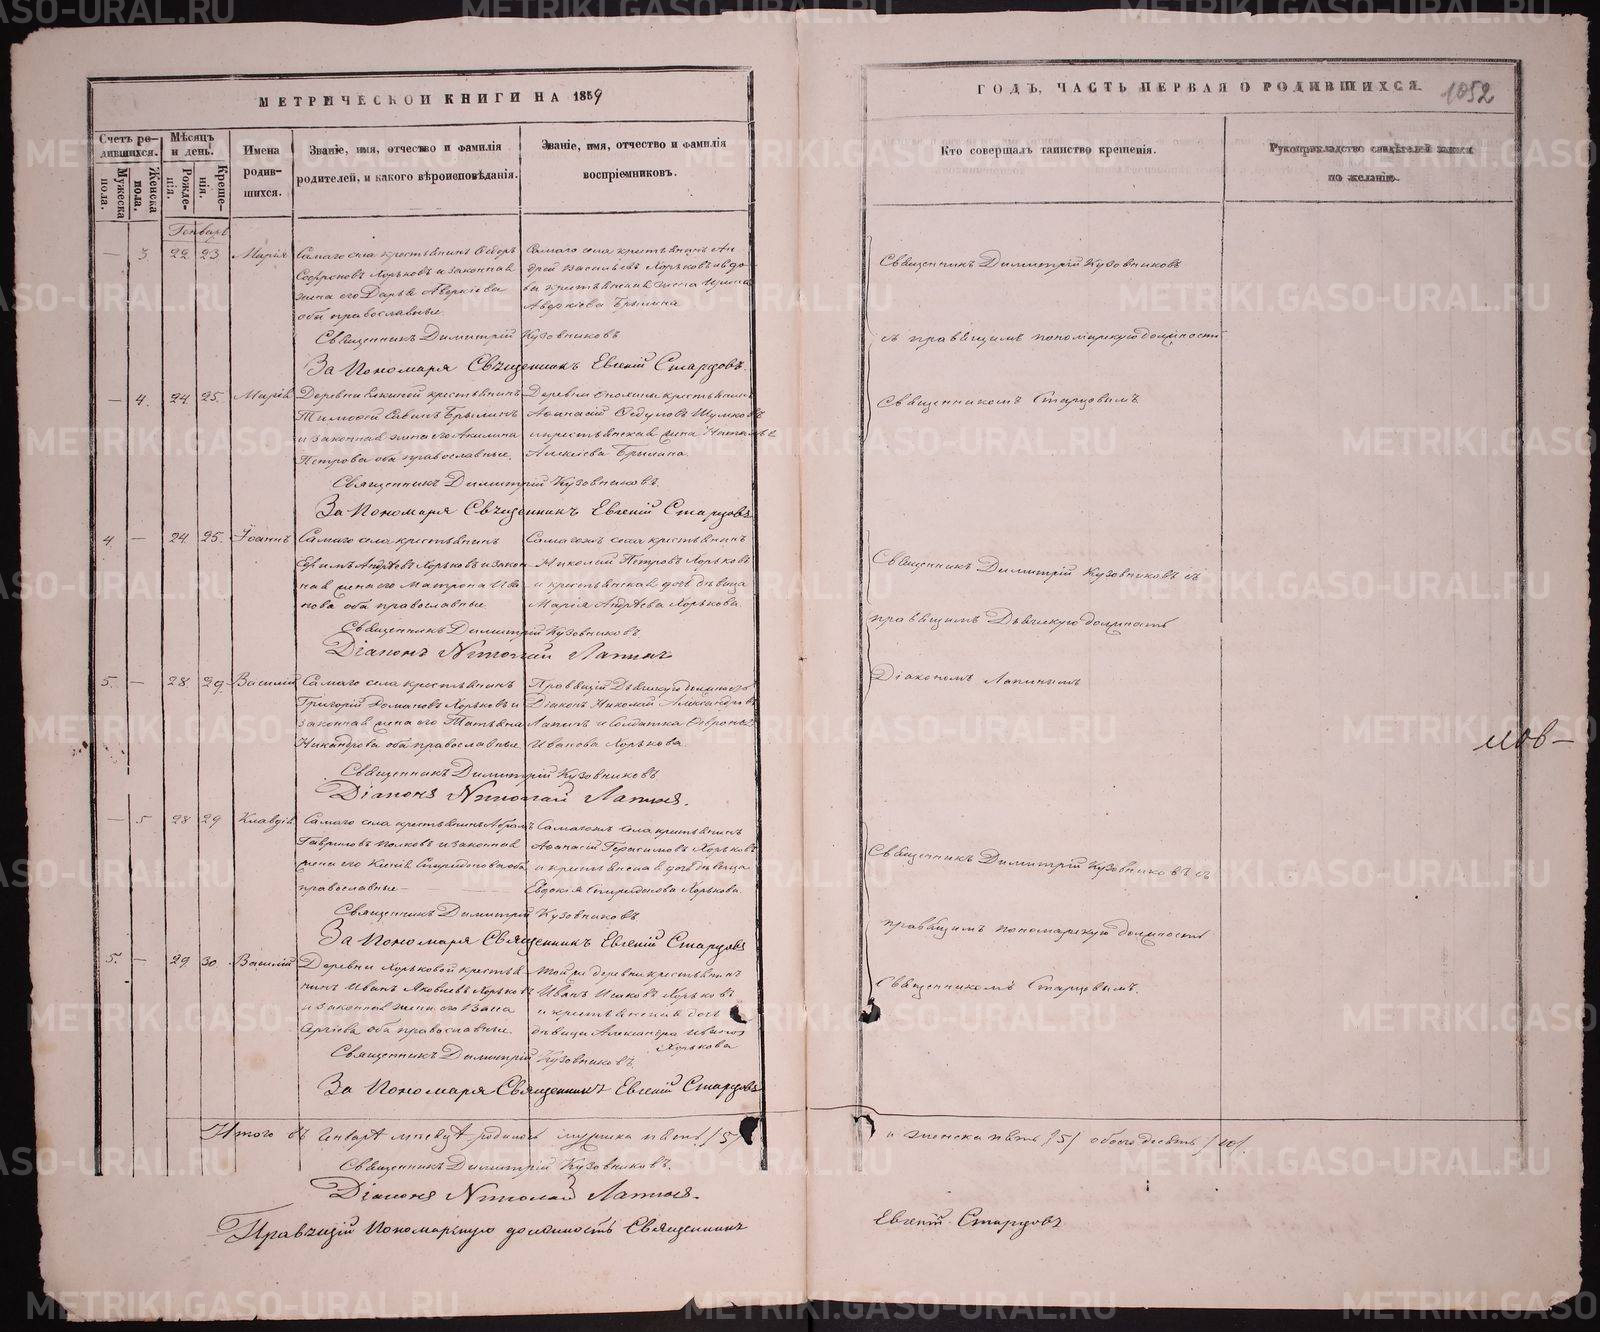 МЕТРИЧЕСКОЙ КНИГИ НА 1859
ГОДЪ, ЧАСТЬ ПЕРВАЯ О РОДИВШИХСЯ.
1052
Счетъ ро-
дившихся.
Мужеска
пола.
Женска
пола.
Мѣсяцъ
и день.
Рожде-
нія.
Креще-
нія.
Имена
родив-
шихся.
Званіе, имя, отчество и фамилія
родителей, и какого вѣроисповѣданія.
Званіе, имя, отчество и фамилія
воспріемниковъ.
Кто совершалъ таинство крещенія.
Рукоприкладство свидѣтелей записи
по желанію.
Генварь
— 3 22 23 Марія
Самаго села крестьянинъ Ѳедоръ
Софроновъ Хорьковъ и законная
жена его Дарья Аверкіева
оба православные
Самаго села крестьянинъ Ан
дрей Васильевъ Хорьковъ и вдо
ва крестьянская жена
Аверкіева Брылина
Священникъ Димитрій Кузовниковъ
За Пономаря Священникъ Евгеній Старцовъ.
Священникъ Димитрій Кузовниковъ
съ правящимъ пономарскую должность
Священникомъ Старцовымъ.
— 4. 24 25. Марія
Деревни крестьянинъ
Тимофей Савинъ Брылинъ
и законная жена его Акилина
Петрова оба православные.
Деревни крестьянинъ
Афанасій Шумковъ
и крестьянская жена
Алексіева Брылина.
Священникъ Димитрій Кузовниковъ
За Пономаря Священникъ Евгеній Старцовъ
4. — 24 25. Іоаннъ
Самаго села крестьянинъ
Ефимъ Андреевъ Хорьковъ и закон
ная жена его Матрона Ива
нова оба православные
Самагожъ села крестьянинъ
Николай Петровъ Хорьковъ
и крестьянская дочь дѣвица
Марія Андреева Хорькова
Священникъ Димитрій Кузовниковъ
Діаконъ Николай Лапинъ
Священникъ Димитрій Кузовниковъ съ
правящимъ Дьячкую должность
Діакономъ Лапинымъ
5. — 28. 29. Василій
Самаго села крестьянинъ
Григорій Романовъ Хорьковъ и
законная жена его Татьяна
Никандрова оба православные
Правящій Дьячкую должность
Діаконъ Николай Александровъ
Лапинъ и Солдатка
Иванова Хорькова.
Священникъ Димитрій Кузовниковъ
Діаконъ Николай Лапинъ.
— 5 28 29 Клавдія
Самаго села крестьянинъ Абрамъ
Гавриловъ и законная
жена его Спиридонова оба
православные —
Самагожъ села крестьянинъ
Афанасій Герасимовъ Хорьковъ
и крестьянская дочь дѣвица
Евдокія Спиридонова Хорькова
Священникъ Димитрій Кузовниковъ
За Пономаря Священникъ Евгеній Старцовъ
Священникъ Димитрій Кузовниковъ съ
правящимъ пономарскую должность
Священникомъ Старцовымъ.
5. — 29 30 Василій
Деревни Хорьковой крестья
нинъ Иванъ Яковлевъ Хорьковъ
и законная жена его
оба православные.
Той же деревни крестьянинъ
Иванъ Исаковъ Хорьковъ
и крестьянская дочь
дѣвица Александра Иванова
Хорькова
Священникъ Димитрій Кузовниковъ
За Пономаря Священникъ Евгеній Старцовъ
Итого въ Генварѣ мѣсяцѣ родилось мужеска пять /5/
и женска пять /5/ обоего десять /10/.
Священникъ Димитрій Кузовниковъ.
Діаконъ Николай Лапинъ.
Правящій Пономарскую должность Священникъ
Евгеній Старцовъ
METRIKI.GASO-URAL.RU